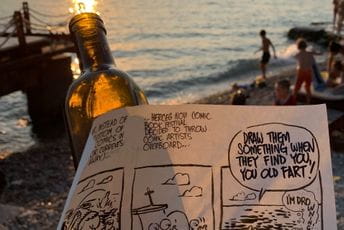 INSTEAD OF
BOTTOM OF
COMICS IN
CURRENT
... HEROES NOW COMIC
BOOK FESTIVAL
DECIDED TO THROW
COMIC ARTISTS
OVERBOARD...
DRAW THEM
SOMETHING WHEN
THEY FIND YOU,
YOU OLD FART!
I'M DRO